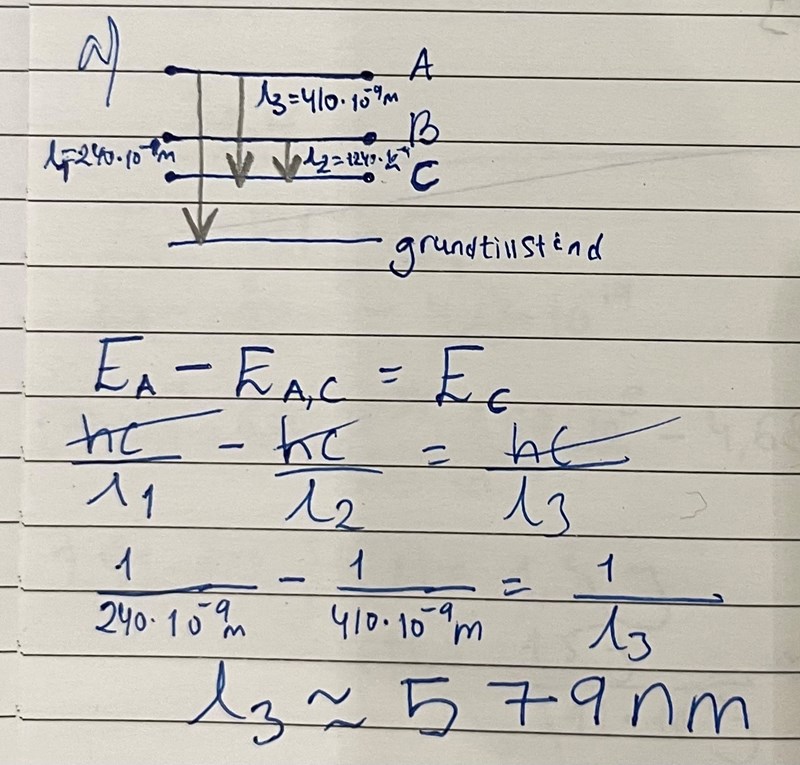 a)
A
λ3=410·10⁻⁹m
B
λ1=240·10⁻⁹m
λ2=1240·10⁻⁹
C
grundtillstånd
E_A − E_A,C = E_C
hc/λ1 − hc/λ2 = hc/λ3
1/240·10⁻⁹m − 1/410·10⁻⁹m = 1/λ3
λ3 ≈ 579nm